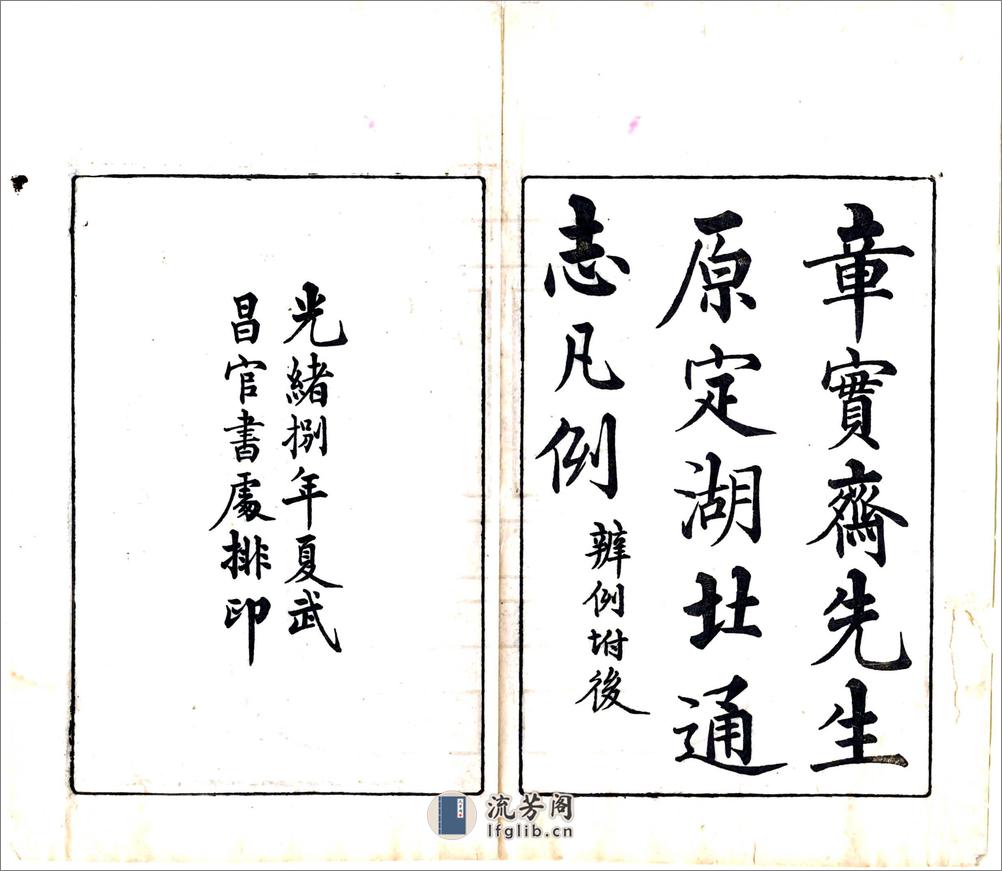 章實齋先生
原定湖北通
志凡例
辨例坿後
光緒捌年夏武
昌官書處排印
流芳阁
lfglib.cn